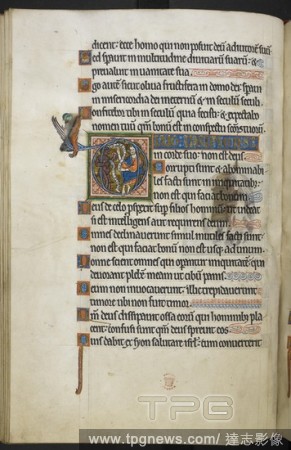 dicent: Ecce homo qui non posuit deum adiutorem suum
Sed speravit in multitudine divitiarum suarum: &
prevaluit in vanitate sua.
go autem sicut oliva fructifera in domo dei speravi
in misericordia dei in eternum & in seculum seculi
onfitebor tibi in seculum quia fecisti: & expectabo
nomen tuum quoniam bonum est in conspectu sanctorum
in corde suo: non est deus.
Corrupti sunt & abominabiles
facti sunt in iniquitatibus:
non est qui faciat bonum
eus de celo prospexit super filios hominum: ut videat
si est intelligens aut requirens deum.
mnes declinaverunt simul inutiles facti sunt:
non est qui faciat bonum non est usque ad unum
onne scient omnes qui operantur iniquitatem: qui
devorant plebem meam ut cibum panis.
eum non invocaverunt: illic trepidaverunt
timore ubi non fuit timor.
quoniam deus dissipavit ossa eorum qui hominibus pla
cent: confusi sunt quoniam deus sprevit eos
uis dabit ex syon salutare israel: cum converterit
TPG
www.tpgnews.com / 達志影像